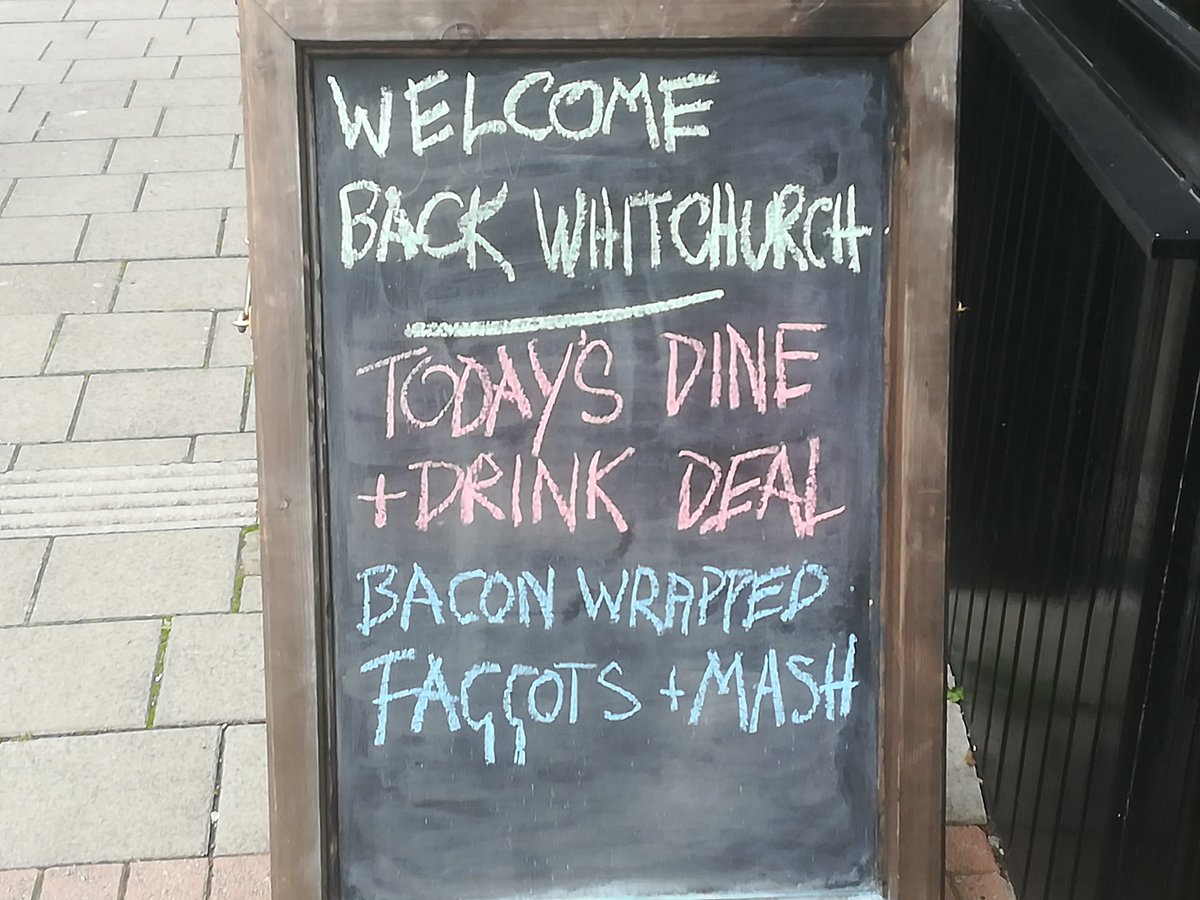 WELCOME
BACK WHITCHURCH
TODAY'S DINE
+ DRINK DEAL
BACON WRAPPED
FAGGOTS + MASH